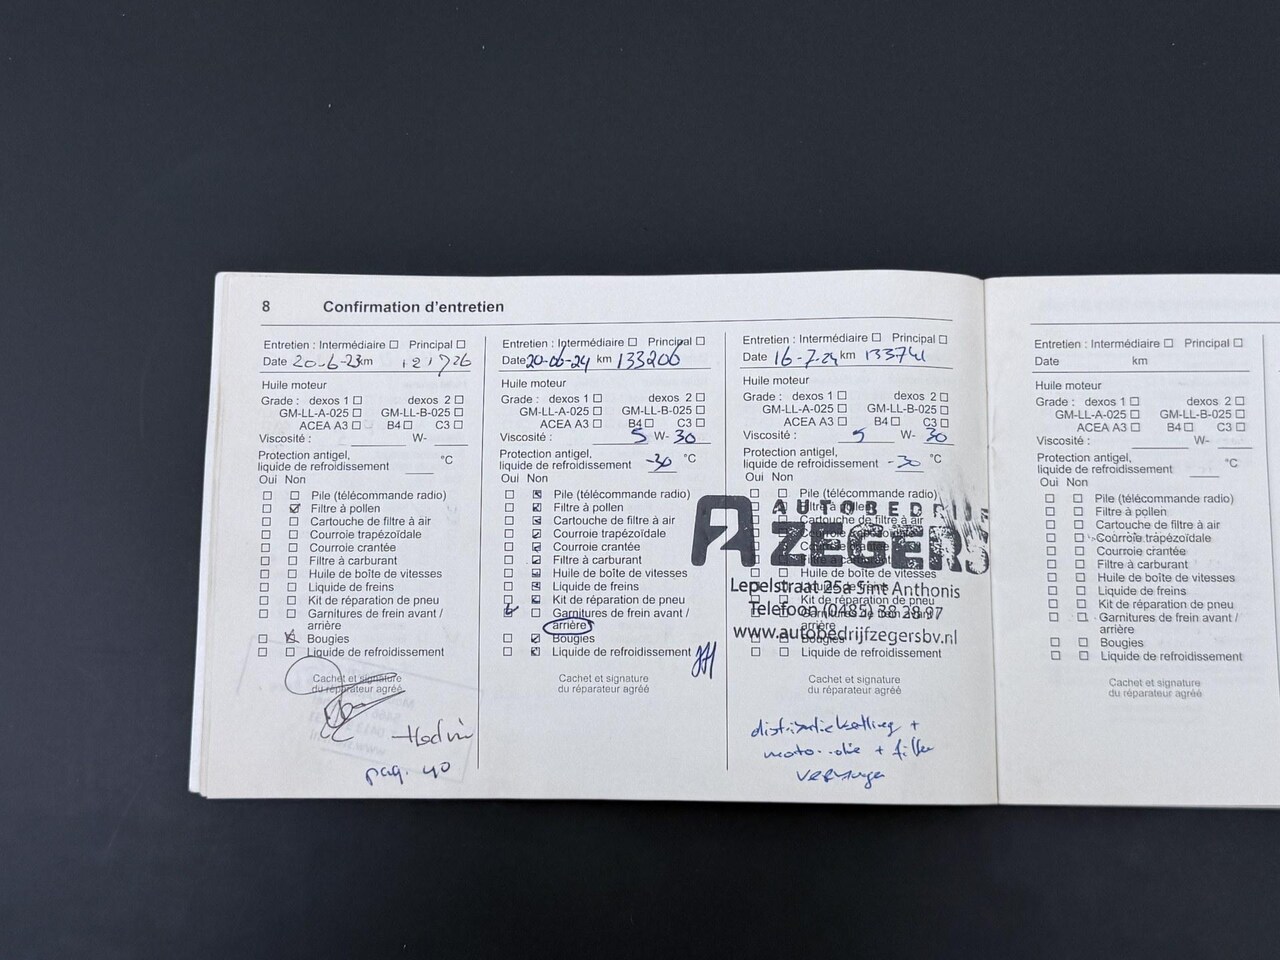 8 Confirmation d'entretien
Entretien : Intermédiaire ☐ Principal ☐
Date 20-6-23 km 121726
Huile moteur
Grade : dexos 1 ☐ dexos 2 ☐
GM-LL-A-025 ☐ GM-LL-B-025 ☐
ACEA A3 ☐ B4 ☐ C3 ☐
Viscosité : W-
Protection antigel,
liquide de refroidissement °C
Oui Non
Pile (télécommande radio)
Filtre à pollen
Cartouche de filtre à air
Courroie trapézoïdale
Courroie crantée
Filtre à carburant
Huile de boîte de vitesses
Liquide de freins
Kit de réparation de pneu
Garnitures de frein avant /
arrière
Bougies
Liquide de refroidissement
Cachet et signature
du réparateur agréé
pag. 40
Entretien : Intermédiaire ☐ Principal ☐
Date 20-06-24 km 133206
Huile moteur
Grade : dexos 1 ☐ dexos 2 ☐
GM-LL-A-025 ☐ GM-LL-B-025 ☐
ACEA A3 ☐ B4 ☐ C3 ☐
Viscosité : 5 W- 30
Protection antigel,
liquide de refroidissement -30 °C
Oui Non
Pile (télécommande radio)
Filtre à pollen
Cartouche de filtre à air
Courroie trapézoïdale
Courroie crantée
Filtre à carburant
Huile de boîte de vitesses
Liquide de freins
Kit de réparation de pneu
Garnitures de frein avant /
arrière
Bougies
Liquide de refroidissement
Cachet et signature
du réparateur agréé
Entretien : Intermédiaire ☐ Principal ☐
Date 16-7-24 km 133741
Huile moteur
Grade : dexos 1 ☐ dexos 2 ☐
GM-LL-A-025 ☐ GM-LL-B-025 ☐
ACEA A3 ☐ B4 ☐ C3 ☐
Viscosité : 5 W- 30
Protection antigel,
liquide de refroidissement -30 °C
Oui Non
Pile (télécommande radio)
Filtre à pollen
Cartouche de filtre à air
Huile de boîte de vitesses
Kit de réparation de pneu
Garnitures de frein avant /
arrière
Bougies
Liquide de refroidissement
AUTOBEDRIJF
ZEGERS
Lepelstraat 25a Sint Anthonis
Telefoon (0485) 38 28 97
www.autobedrijfzegersbv.nl
Cachet et signature
du réparateur agréé
distributieketting +
motorolie + filter
vervangen
Entretien : Intermédiaire ☐ Principal ☐
Date km
Huile moteur
Grade : dexos 1 ☐ dexos 2 ☐
GM-LL-A-025 ☐ GM-LL-B-025 ☐
ACEA A3 ☐ B4 ☐ C3 ☐
Viscosité : W-
Protection antigel,
liquide de refroidissement °C
Oui Non
Pile (télécommande radio)
Filtre à pollen
Cartouche de filtre à air
Courroie trapézoïdale
Courroie crantée
Filtre à carburant
Huile de boîte de vitesses
Liquide de freins
Kit de réparation de pneu
Garnitures de frein avant /
arrière
Bougies
Liquide de refroidissement
Cachet et signature
du réparateur agréé